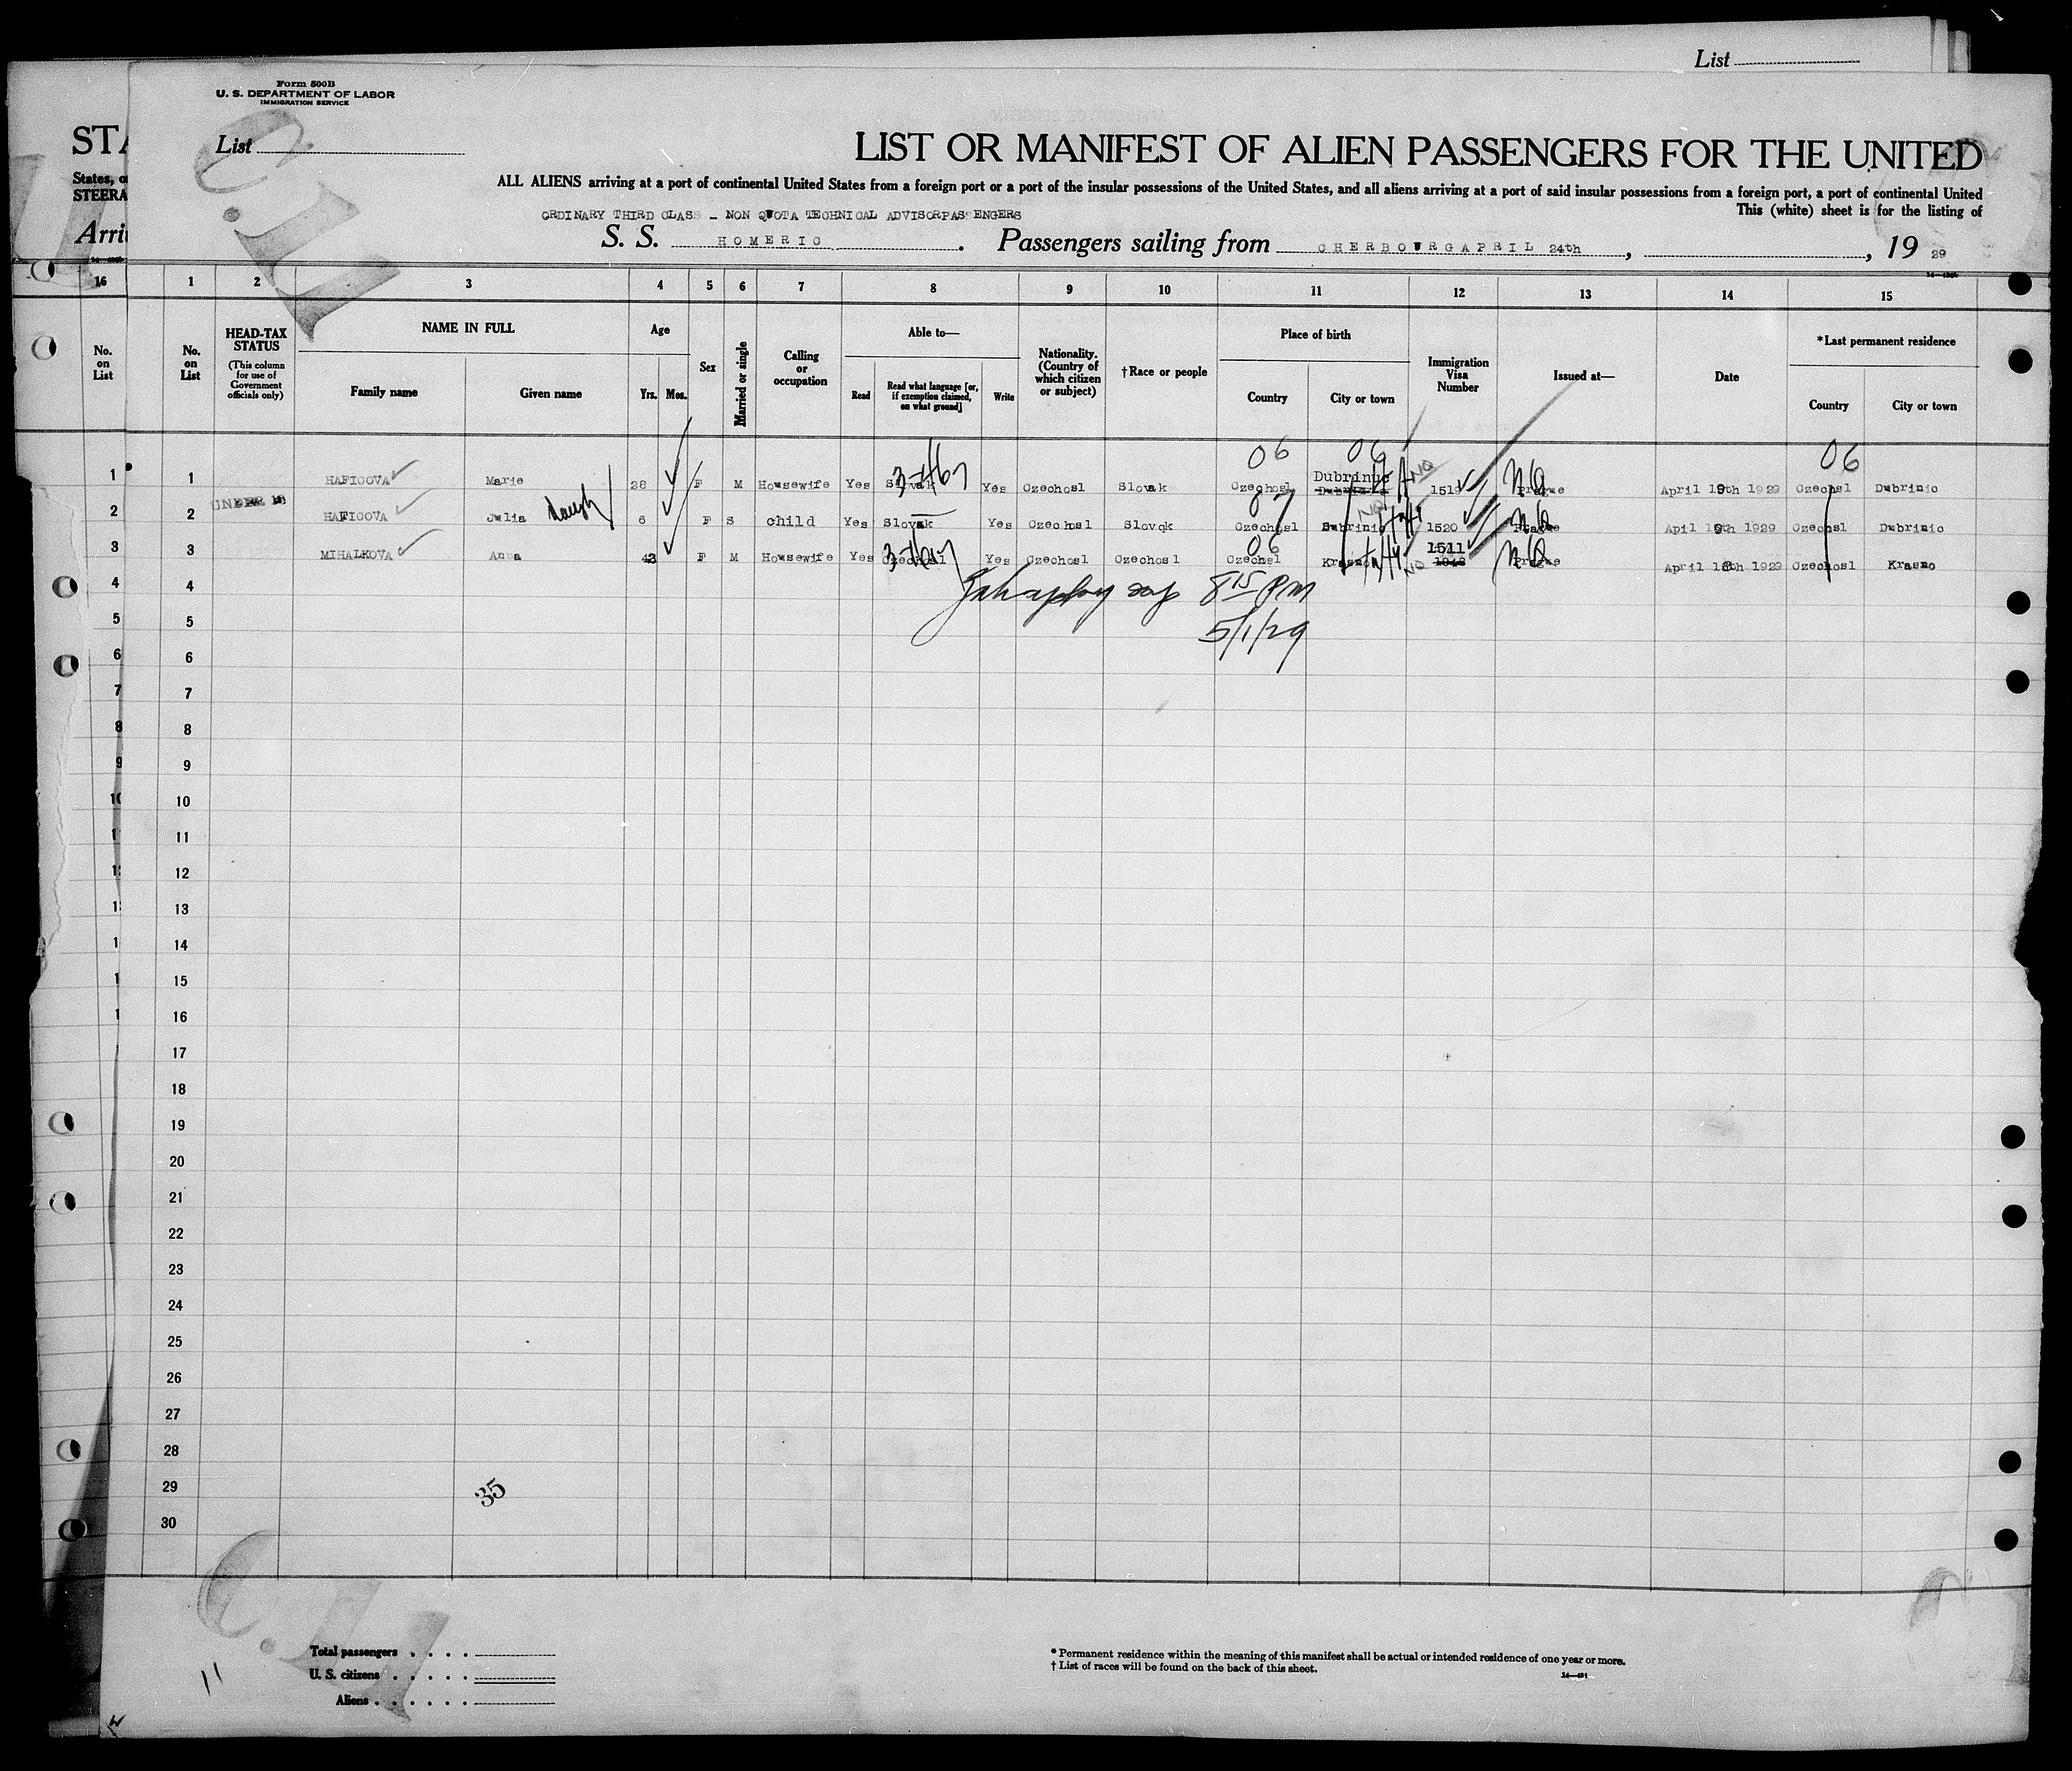 List
Form 500B
U. S. DEPARTMENT OF LABOR
IMMIGRATION SERVICE
STA
List
LIST OR MANIFEST OF ALIEN PASSENGERS FOR THE UNITED
States, o
STEERA
ALL ALIENS arriving at a port of continental United States from a foreign port or a port of the insular possessions of the United States, and all aliens arriving at a port of said insular possessions from a foreign port, a port of continental United
This (white) sheet is for the listing of
ORDINARY THIRD CLASS - NON QUOTA TECHNICAL ADVISORPASSENGERS
Arri
S. S. HOMERIC. Passengers sailing from CHERBOURG APRIL 24th, , 19 29
16 1 2 3 4 5 6 7 8 9 10 11 12 13 14 15
No. on List
No. on List
HEAD-TAX STATUS
(This column for use of Government officials only)
NAME IN FULL
Family name
Given name
Age
Yrs. Mos.
Sex
Married or single
Calling or occupation
Able to—
Read
Read what language [or, if exemption claimed, on what ground]
Write
Nationality. (Country of which citizen or subject)
†Race or people
Place of birth
Country
City or town
Immigration Visa Number
Issued at—
Date
*Last permanent residence
Country
City or town
06 06 06
1 1 HAFICOVA Marie 28 F M Housewife Yes Slovak Yes Czechosl Slovak Czechosl Dubrinic 1519 NQ Prague April 19th 1929 Czechosl Dubrinic
UNDER 16
2 2 HAFICOVA Julia daugh 6 F S child Yes Slovak Yes Czechosl Slovak Czechosl Dubrinic 1520 NQ Prague April 19th 1929 Czechosl Dubrinic
3 3 MIHALKOVA Anna 43 F M Housewife Yes Czechosl Yes Czechosl Czechosl Czechosl Krasno 1511 NQ Prague April 18th 1929 Czechosl Krasno
4 4
8 15 PM
5 5
5/1/29
6 6
7 7
8 8
9 9
10 10
11
12
13
14
15
16
17
18
19
20
21
22
23
24
25
26
27
28
29
35
30
Total passengers
U. S. citizens
Aliens
11
* Permanent residence within the meaning of this manifest shall be actual or intended residence of one year or more.
† List of races will be found on the back of this sheet.